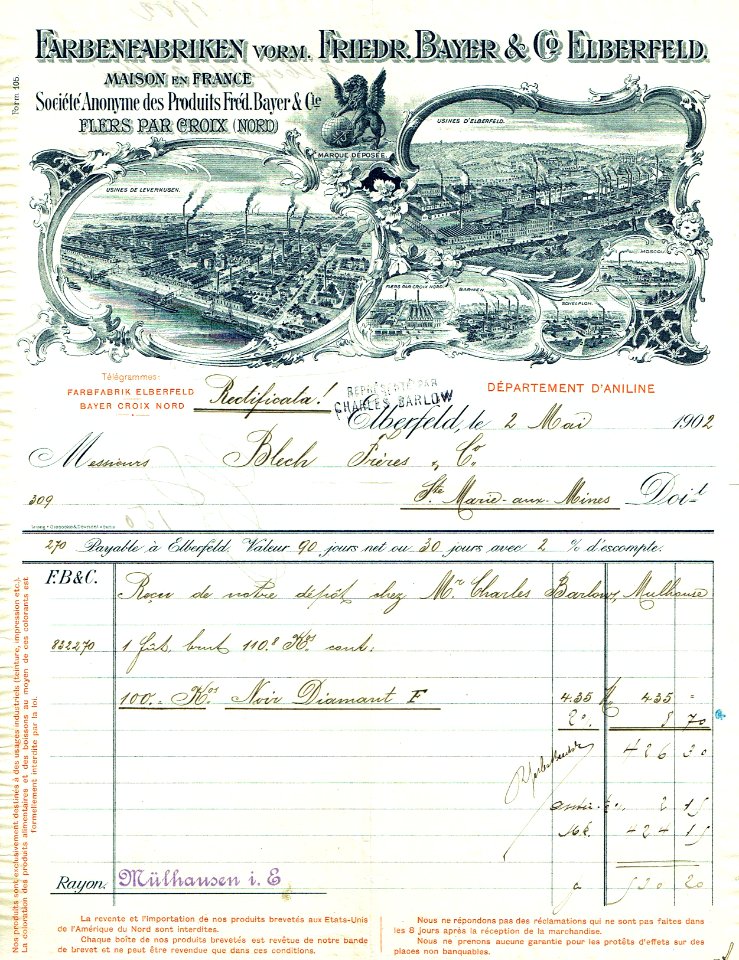 1902
Form 105.
FARBENFABRIKEN VORM. FRIEDR. BAYER & Cº ELBERFELD.
MAISON EN FRANCE
Société Anonyme des Produits Fréd. Bayer & Cie
FLERS PAR CROIX (NORD)
MARQUE DÉPOSÉE
USINES D'ELBERFELD.
USINES DE LEVERKUSEN.
MOSCOU
FLERS PAR CROIX NORD.
BARMEN.
SCHELPLOH.
Télégrammes:
FARBFABRIK ELBERFELD
BAYER CROIX NORD
Rectificata!
REPRÉSENTÉ PAR
CHARLES BARLOW
DÉPARTEMENT D'ANILINE
Elberfeld, le 2 Mai 1902
Messieurs Blech Frères & Cº
309 Ste Marie-aux-Mines Doit
270 Payable à Elberfeld. Valeur 90 jours net ou 30 jours avec 2 % d'escompte.
F.B & C. Reçu de notre dépôt chez Mr Charles Barlow, Mulhouse
832270 1 fût, brut 110.8 Kos cont:
100.- Kos Noir Diamant F 4.35 M 435 "
2% 8 70
426 30
2 15
424 15
Rayon. Mülhausen i. E
530 20
Nos produits sont exclusivement destinés à des usages industriels (teinture, impression etc.).
La coloration des produits alimentaires et des boissons au moyen de ces colorants est
formellement interdite par la loi.
La revente et l'importation de nos produits brevetés aux Etats-Unis
de l'Amérique du Nord sont interdites.
Chaque boîte de nos produits brevetés est revêtue de notre bande
de brevet et ne peut être revendue que dans ces conditions.
Nous ne répondons pas des réclamations qui ne sont pas faites dans
les 8 jours après la réception de la marchandise.
Nous ne prenons aucune garantie pour les protêts d'effets sur des
places non banquables.